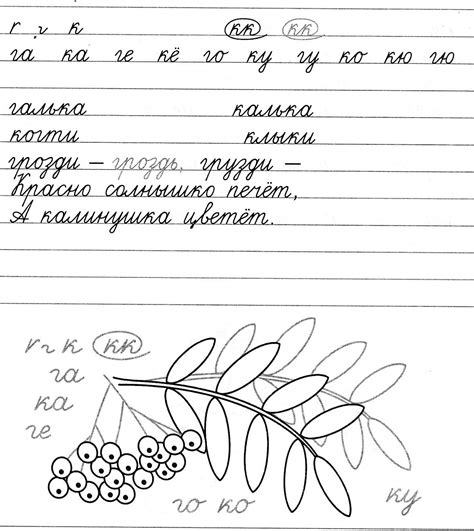 г г к кк кк
га ка ге кё го ку гу ко кю гю
галька калька
когти клыки
грозди – гроздь, грузди –
Красно солнышко печёт,
А калинушка цветёт.
г г к кк
га
ка
ге
го ко ку